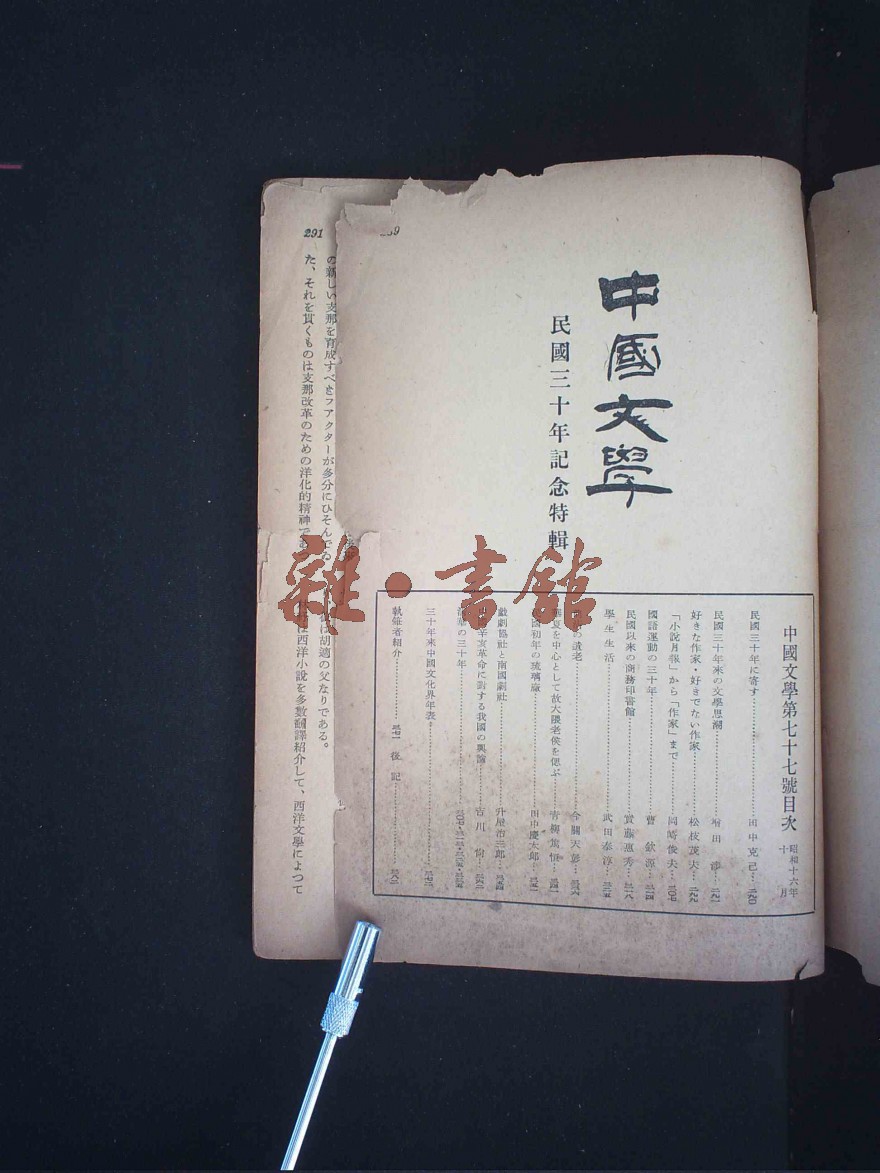 中國文學
民國三十年記念特輯
中國文學第七十七號目次 昭和十六年十月
民國三十年に寄す 田中克己 二九〇
民國三十年來の文學思潮 増田渉 二九一
好きな作家・好きでない作家 松枝茂夫 二九九
「小說月報」から「作家」まで 岡崎俊夫 三〇七
國語運動の三十年 曹欽源 三一四
民國以來の商務印書館 實藤惠秀 三一八
學生生活 武田泰淳 三二五
の遺老 今關天彭 三三六
を中心として故大隈老侯を偲ぶ 青柳篤恒 三四一
國初年の琉璃廠 田中慶太郎 三五一
戲劇協社と南國劇社 升屋治三郎 三五四
辛亥革命に對する我國の輿論 吉川 三六二
の三十年
三十年來中國文化界年表 三七二
執筆者紹介 三七一 後記 三八二
289
291
の新しい支那を育成すべきフアクターが多分にひそんでゐ
た、それを貫くものは支那改革のための洋化的精神で
は胡適の父なりである。
は西洋小說を多數飜譯紹介して、西洋文學によつて
雜·書館